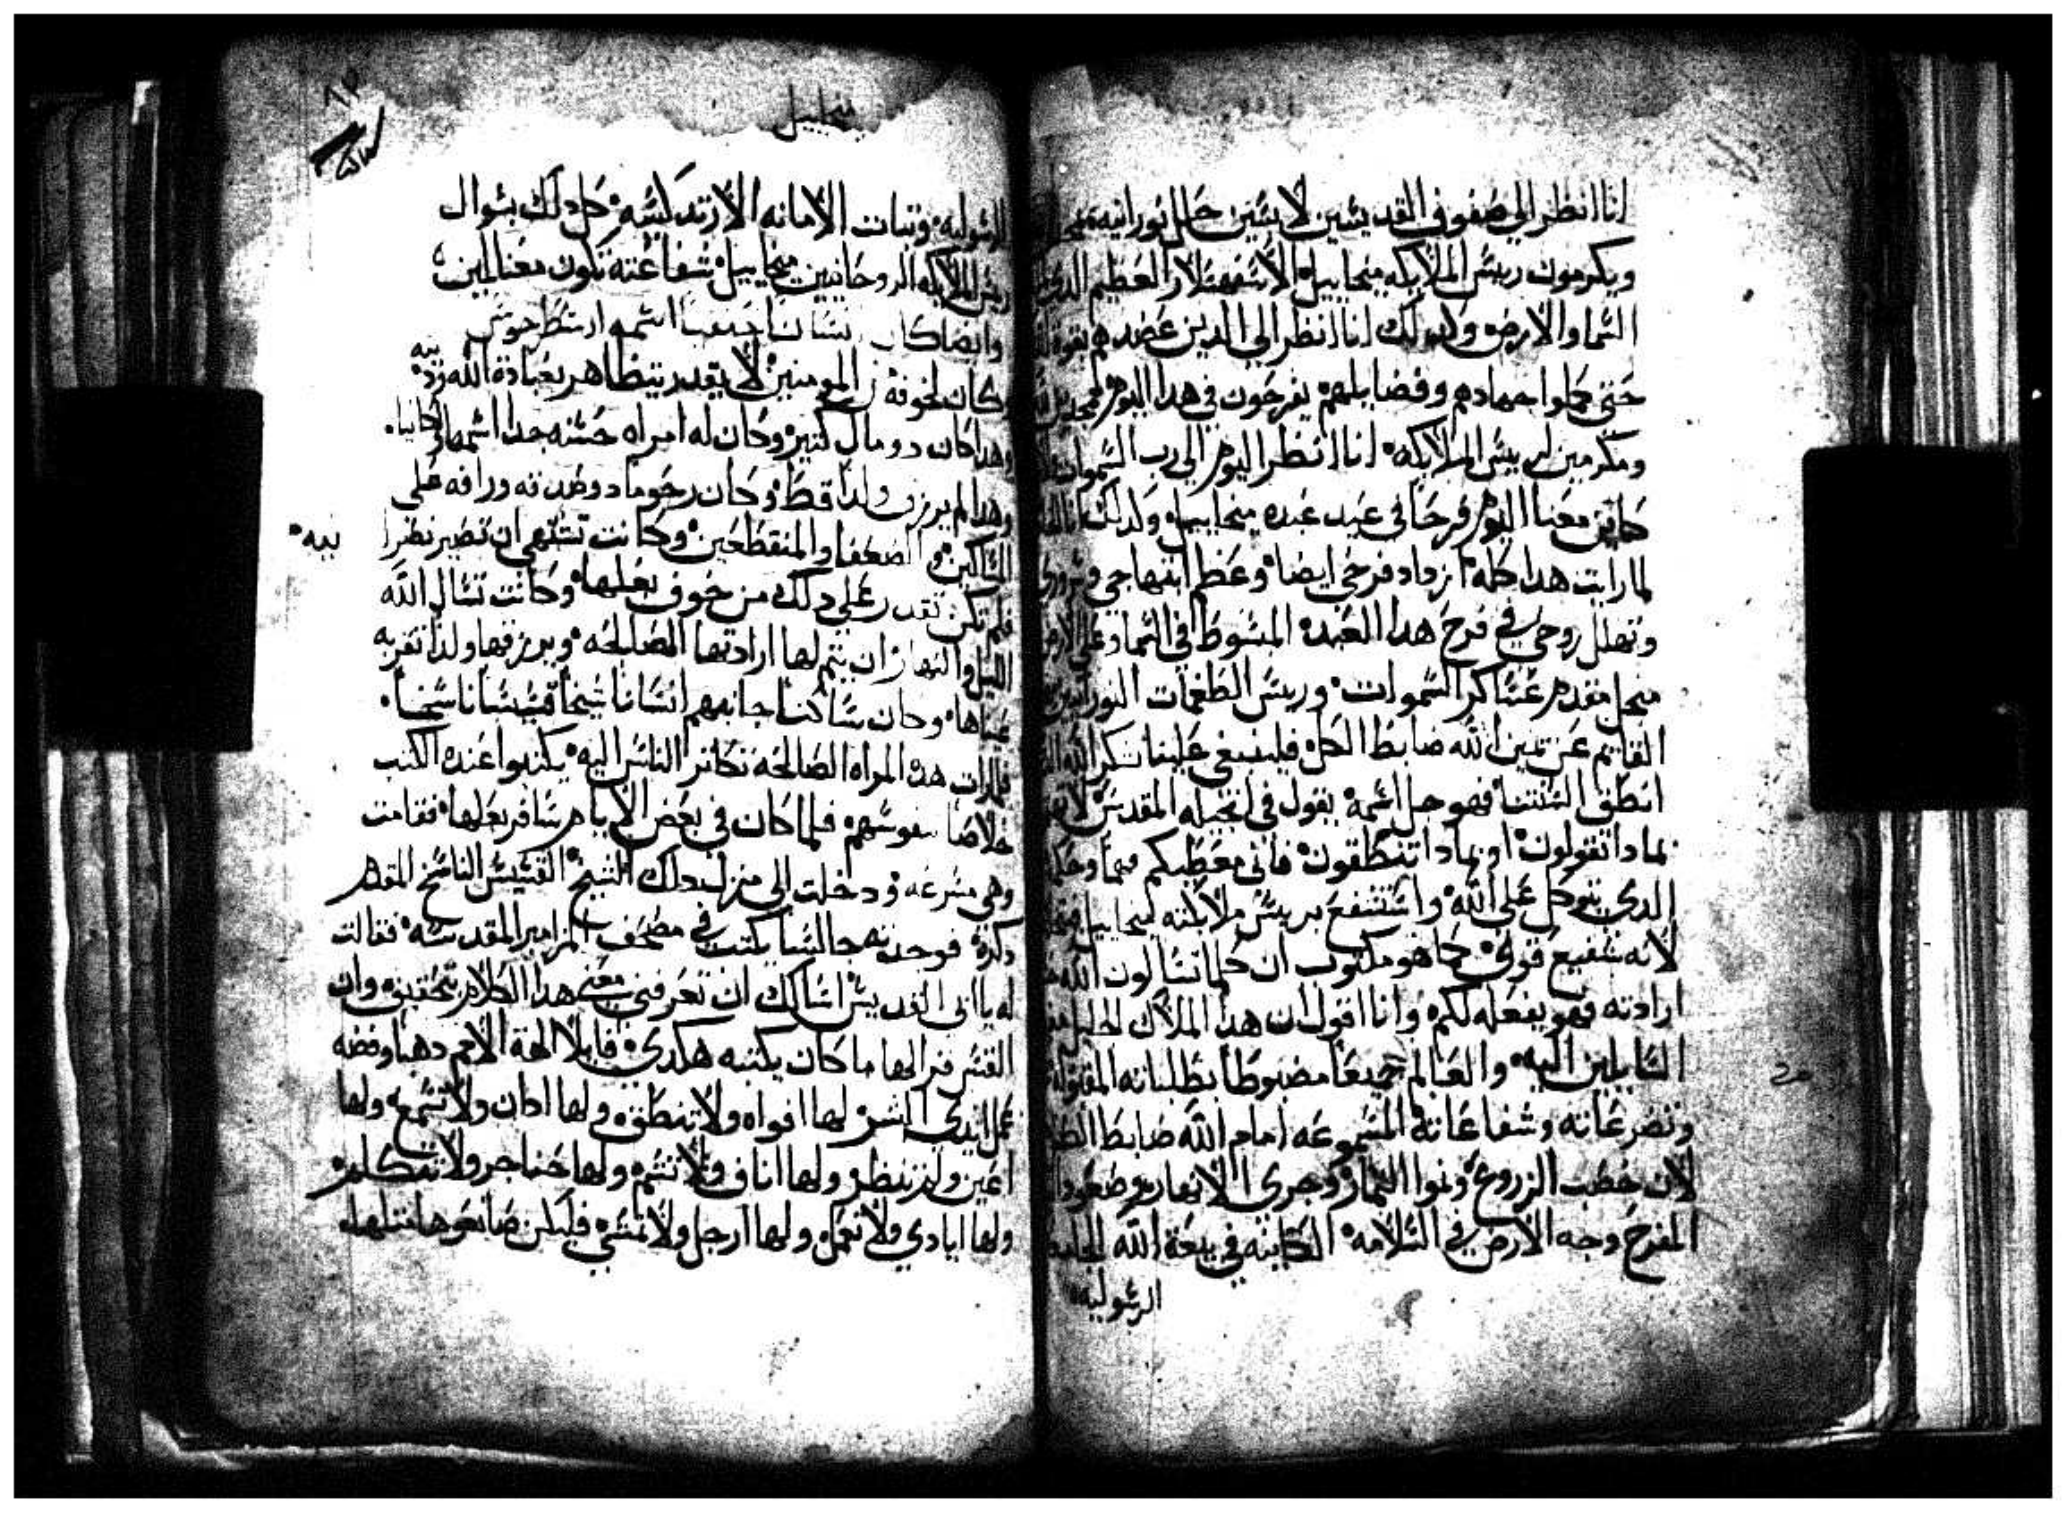 انا انظر الي صفوف القديسين لابسين حلل نورانيه
ويكرمون رييس الملايكه ميخاييل الاسفهسلار العظيم
السما والارض وكدلك انا انظر الي الدين عضدهم بقوة
حتي كملوا جهادهم وفضايلهم يفرحون في هدا اليوم
ومكرمين لرييس الملايكه انا انظر اليوم الي رب السموات
كاين معنا اليوم فرحا في عيد عبده ميخاييل ولدلك انا
لما رايت هدا كله ازداد فرحي ايضا وعظم ابتهاجي وسروري
وتهلل روحي في فرح هدا العيد المبسوط في السما وعلي الارض
منجل مقدم عساكر السموات ورييس الطغمات النورانيين
القايم عن يمين الله ضابط الكل فلينبغي علينا نشكر الله
انطق السنتنا فهو جل اسمه يقول في انجيله المقدس
بمادا تقولون او بمادا تنطقون فاني معطيكم فما وحكمة
الدي يتوكل علي الله واستشفع برييس ملايكته ميخاييل
لانه شفيع قوي كما هو مكتوب ان كلما تسالون الله
ارادته فهو يفعله لكم وانا اقول ان هدا الملاك الجليل
السايلين اليه والعالم جميعا مضبوطا بطلباته المقبولة
وتضرعاته وشفاعاته المسموعه امام الله ضابط الكل
لان خصب الزروع ونموا الثمار وجري الانهار وطلوع
المفرح وجه الارض في السلامه الكاينه في بيعة الله الجامعه
الرسوليه
ميخاييل
الرسوليه وتبات الامانه الارتدكسيه كل دلك بسوال
رييس الملايكه الروحانيين ميخاييل شفاعته تكون معنا امين
وايضا كان انسانا اسمه ارسطرخوس
وكان لخوفه من المومنين لا يقدر يتظاهر بعبادة الله
وهدا كان دو مال كتير وكان له امراه حسنه جدا اسمها
وهدا لم يرزق ولدا قط وكان رحوما دو صدقه ورافه علي
المساكين والضعفا والمنقطعين وكانت تشتهي ان تصير نصرانيه
فلم تكن تقدر علي دلك من خوف بعلها وكانت تسال الله
الليل والنهار ان يتم لها ارادتها الصالحه ويرزقها ولدا تقر به
عيناها وكان ساكنا جانبهم انسانا شيخا قسيسا ناسخا
فلما رات هده المراه الصالحه تكاتر الناس اليه يكتبوا عنده الكتب
خلاصا لنفوسهم فلما كان في بعض الايام سافر بعلها فقامت
وهي مسرعه ودخلت الي منزل دلك الشيخ القسيس الناسخ المقدم
دكره فوجدته جالسا يكتب في مصحف المزامير المقدسه فقالت
له يا ابي القديس اسالك ان تعرفني معني هدا الكلام بتحقيق وان
القس قرا لها ما كان يكتبه هكدي قايلا الهة الامم دهبا وفضه
عمل ايدي البشر لها افواه ولا تنطق ولها ادان ولا تسمع ولها
اعين ولم تنظر ولها اناف ولا تشم ولها حناجر ولا تتكلم
ولها ايادي ولا تعمل ولها ارجل ولا تمشي فليكن صانعوها مثلها